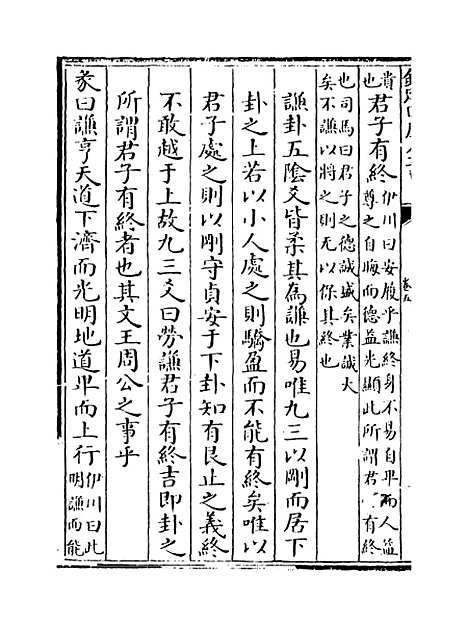 卷五
貴也君子有終伊川曰安履乎謙終身不易自卑而人益尊之自晦而德益光顯此所謂君子有終
也司馬曰君子之德誠盛矣業誠大矣不謙以將之則无以保其終也
謙卦五陰爻皆柔其為謙也易唯九三以剛而居下
卦之上若以小人處之則驕盈而不能有終矣唯以
君子處之則以剛守貞安于下卦知有艮止之義終
不敢越于上故九三爻曰勞謙君子有終吉即卦之
所謂君子有終者也其文王周公之事乎
彖曰謙亨天道下濟而光明地道卑而上行伊川曰此明謙而能